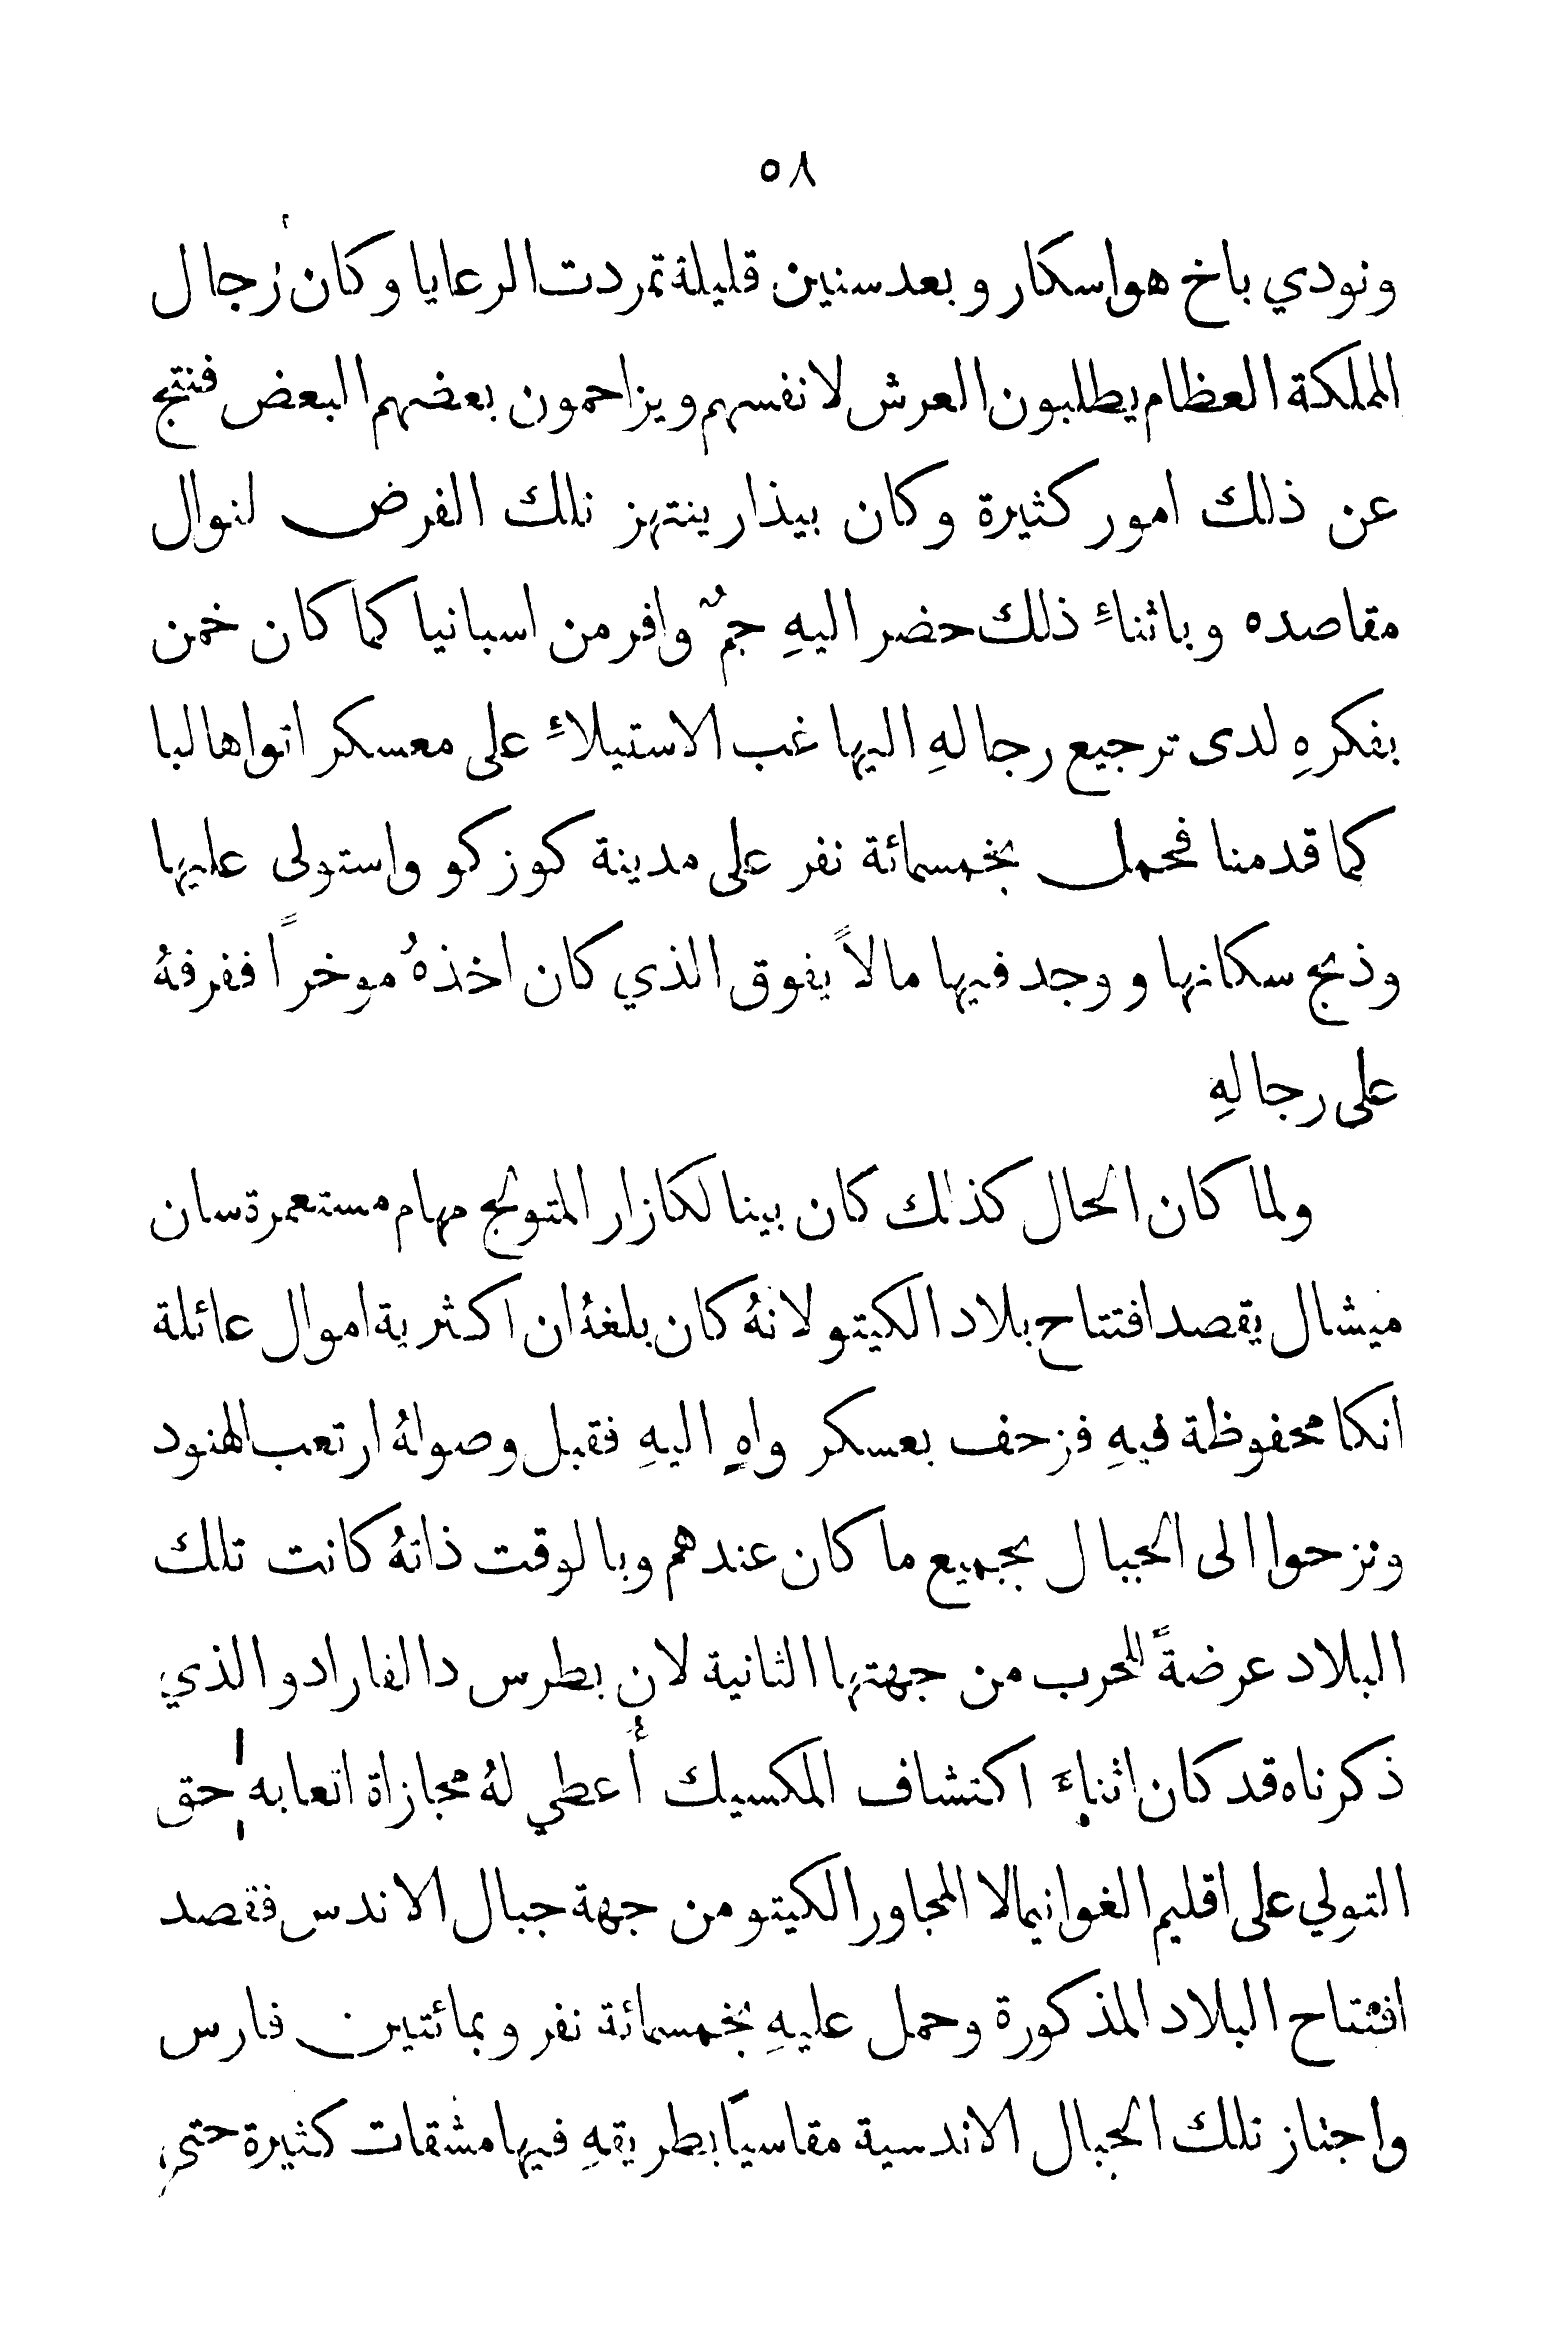 ٥٨
ونودي باخ هواسكار وبعد سنين قليلة تمردت الرعايا وكان رجال
المملكة العظام يطلبون العرش لانفسهم ويزاحمون بعضهم البعض فنتج
عن ذلك امور كثيرة وكان بيذار ينتهز تلك الفرض لنوال
مقاصده وباثناءِ ذلك حضر اليهِ جمٌ وافر من اسبانيا كما كان خمن
بفكرهِ لدى ترجيع رجالهِ اليها غب الاستيلاءِ على معسكر اتواهالبا
كما قدمنا فحمل بخمسمائة نفر على مدينة كوزكو واستولى عليها
وذبح سكانها ووجد فيها مالاً يفوق الذي كان اخذهُ موخراً ففرقهُ
على رجالهِ
ولما كان الحال كذلك كان بينالكازار المتولج مهام مستعمرة سان
ميشال يقصد افتتاح بلاد الكيتو لانهُ كان بلغهُ ان اكثرية اموال عائلة
انكا محفوظة فيهِ فزحف بعسكر واهٍ اليهِ فقبل وصولهُ ارتعب الهنود
ونزحوا الى الجبال بجميع ما كان عندهم وبالوقت ذاتهُ كانت تلك
البلاد عرضةً للحرب من جهتها الثانية لان بطرس دالفارادو الذي
ذكرناه قد كان اثناءَ اكتشاف المكسيك أعطي لهُ مجازاة اتعابه حق
التولي على اقليم الغوانيمالا المجاور الكيتو من جهة جبال الاندس فقصد
افتتاح البلاد المذكورة وحمل عليهِ بخمسمائة نفر وبمائتين فارس
واجتاز تلك الجبال الاندسية مقاسياً بطريقهِ فيها مشقات كثيرة حتى